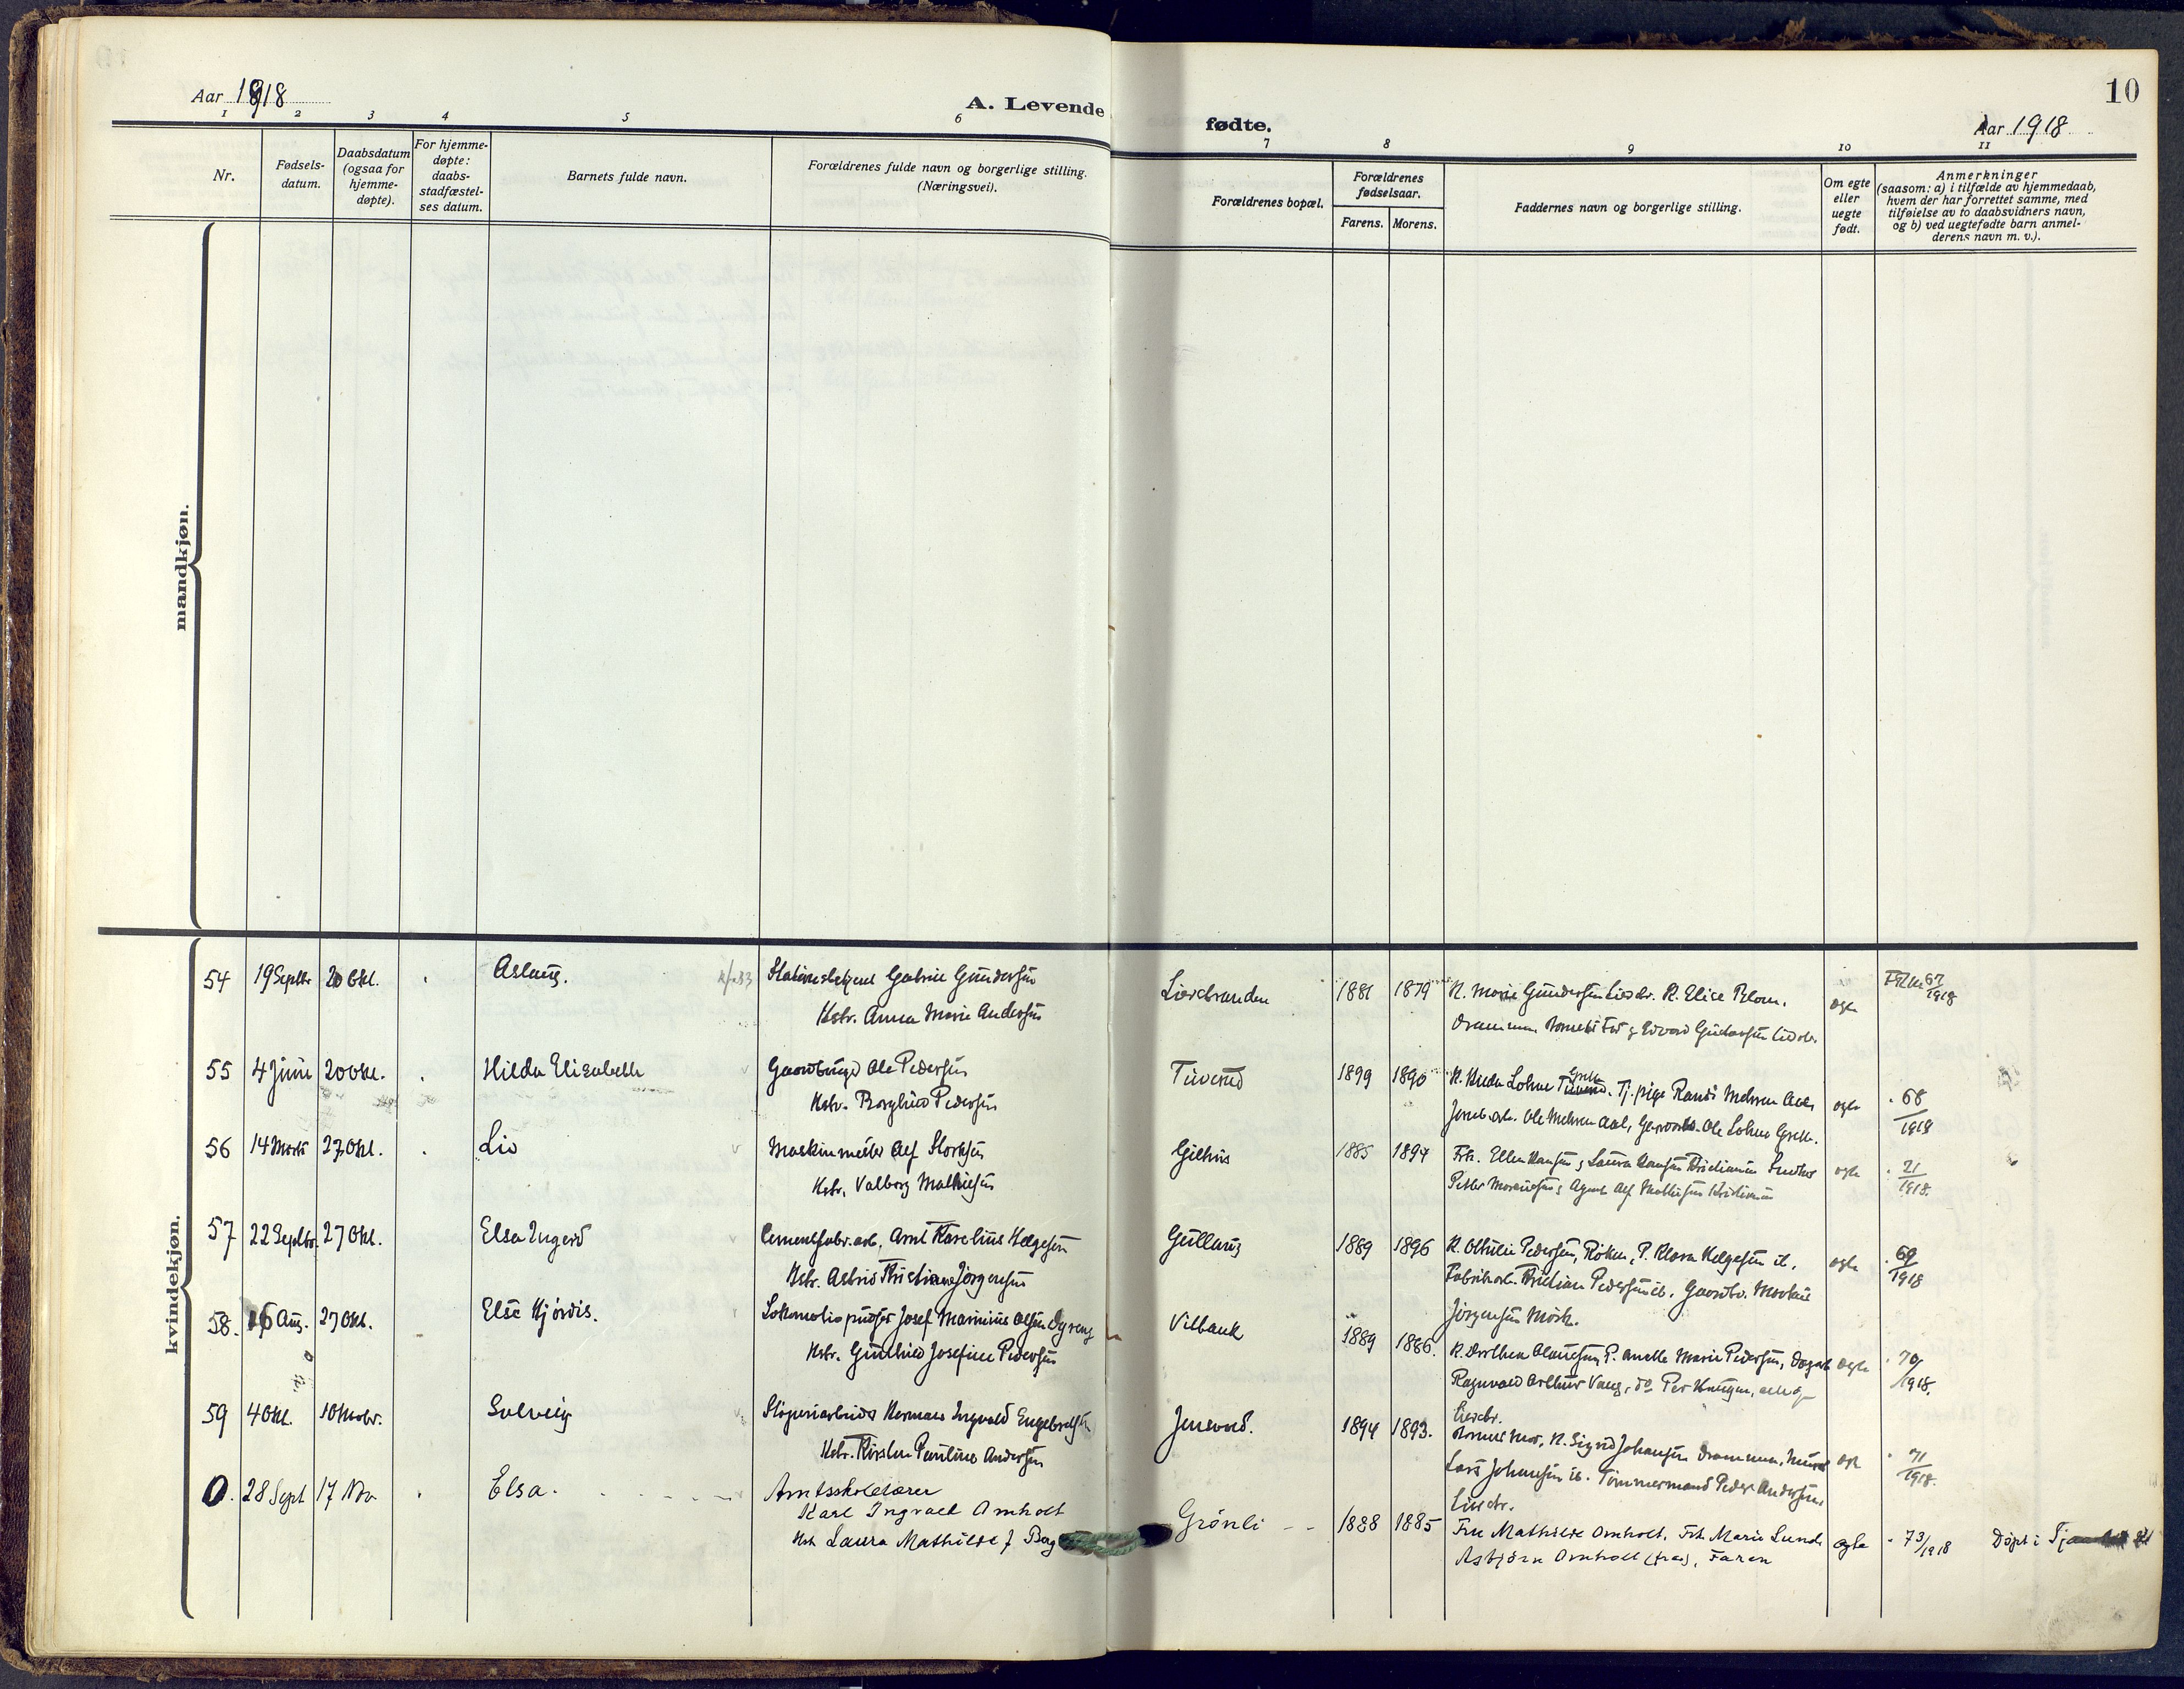 Aar 1918
A. Levende
fødte.
10
Aar 1918
1 2 3 4 5 6
7 8 9 10 11
Nr.
Fødsels-
datum.
Daabsdatum
(ogsaa for
hjemme-
døpte).
For hjemme-
døpte:
daabs-
stadfæstel-
ses datum.
Barnets fulde navn.
Forældrenes fulde navn og borgerlige stilling.
(Næringsvei).
Forældrenes bopæl.
Forældrenes
fødselsaar.
Farens. Morens.
Faddernes navn og borgerlige stilling.
Om egte
eller
uegte
født.
Anmerkninger
(saasom: a) i tilfælde av hjemmedaab,
hvem der har forrettet samme, med
tilføielse av to daabsvidners navn,
og b) ved uegtefødte barn anmel-
derens navn m. v.).
mandkjøn.
kvindekjøn.
54 19 Septbr 20 Okt. Aslaug. Gabriel Gundersen
Hstr. Anna Marie Andersen
Lierstranden 1881 1879 K. Marie Gundersen Lierstr. K. Elise Blom.
Drammen Barnets Far
egte
67
1918
55 4 Juni 20 Okt. Hilda Elisabeth Ole Pedersen
Hstr. Borghild Pedersen
Tuverud 1899 1890 Tj. pige Randi Mehren Aal,
Ole Mehren Aal, Ole Lohne
egte
68
1918
56 14 Marts 27 Okt. Liv Maskinmester Alf Storksen
Hstr. Valborg Mathiesen
Gilhus 1885 1894 Frk. Ellen Hansen, Laura Hansen Kristiania
Agent Alf Mathisen Kristiania
egte
21
1918.
57 22 Septbr. 27 Okt. Elsa Ingerd Cementfabr. arb. Arnt Karelius Helgesen
Hstr. Astrid Kristiane Jørgensen
Gullaug 1889 1896 K. Othilie Pedersen, Røken, P. Klara Helgesen ib.
Fabrikarb. Kristian Pedersen ib. Gaardbr. Markus
Jørgensen Mørk.
egte
69
1918
58. 16 Aug. 27 Okt. Else Hjørdis. Lokomotivpudser Josef Marinius Olsen Dyreng
Hstr. Gunhild Josefine Pedersen
Vilbauk 1889 1886. K. Dorthea Olausen, P. Anette Marie Pedersen,
Ragnvald Arthur Vang, do Per Haugen,
Lierstr.
egte
70
1918.
59 4 Okt. 10 Novbr. Solveig Herman Ingvald Engebretsen
Hstr. Kirsten Pauline Andersen
Jensvold. 1894 1893. Barnets Mor, K. Sigrid Johansen Drammen, Murer
Lars Johansen ib. Tømmermand Peder Andersen
Lierstr.
egte
71
1918.
0. 28 Sept 17 Nov Elsa. Amtsskolelærer
Karl Ingvald Omholt
Hst Laura Mathilde f. Berg
Grönli 1888 1885 Fru Mathilde Omholt. Frk Marie Lunde
Asbjörn Omholt, Faren
egte
73/1918 Døpt i